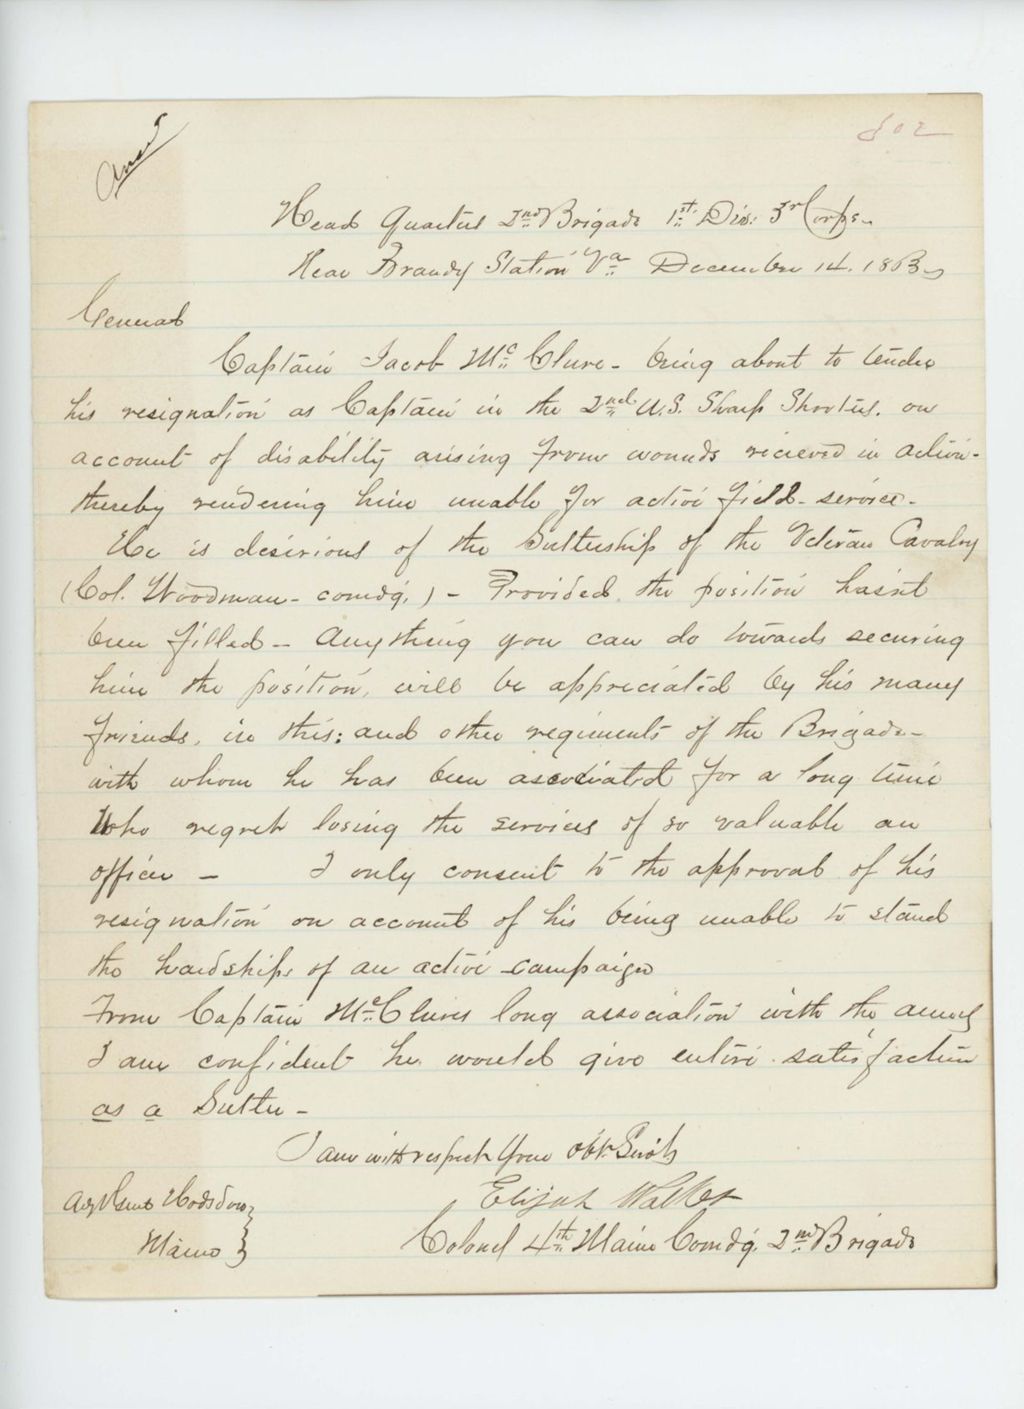 Ansd
802
Head Quarters 2nd Brigade 1st Div: 3rd Corps-
Near Brandy Station Va December 14. 1863-
General
Captain Jacob McClure- being about to tender
his resignation as Captain in the 2nd U.S. Sharp Shooters. on
account of disability arising from wounds recieved in action-
thereby rendering him unable for active field-service-
He is desirious of the Sutlership of the Veteran Cavalry
(Col. Woodman- comdg.) - Provided the position hasnt
been filled - Anything you can do towards securing
him the position, will be appreciated by his many
friends, in this; and other regiments of the Brigade-
with whom he has been associated for a long time
Who regret losing the services of so valuable an
officer - I only consent to the approval of his
resignation on account of his being unable to stand
the hardships of an active campaign
From Captain McClures long association with the army
I am confident he would give entire satisfaction
as a Sutler -
I am with respect Your obt. Servt
Elijah Walker
Colonel 4th Maine Comdg. 2nd Brigade
Adjt Genl Hodsdon
Maine